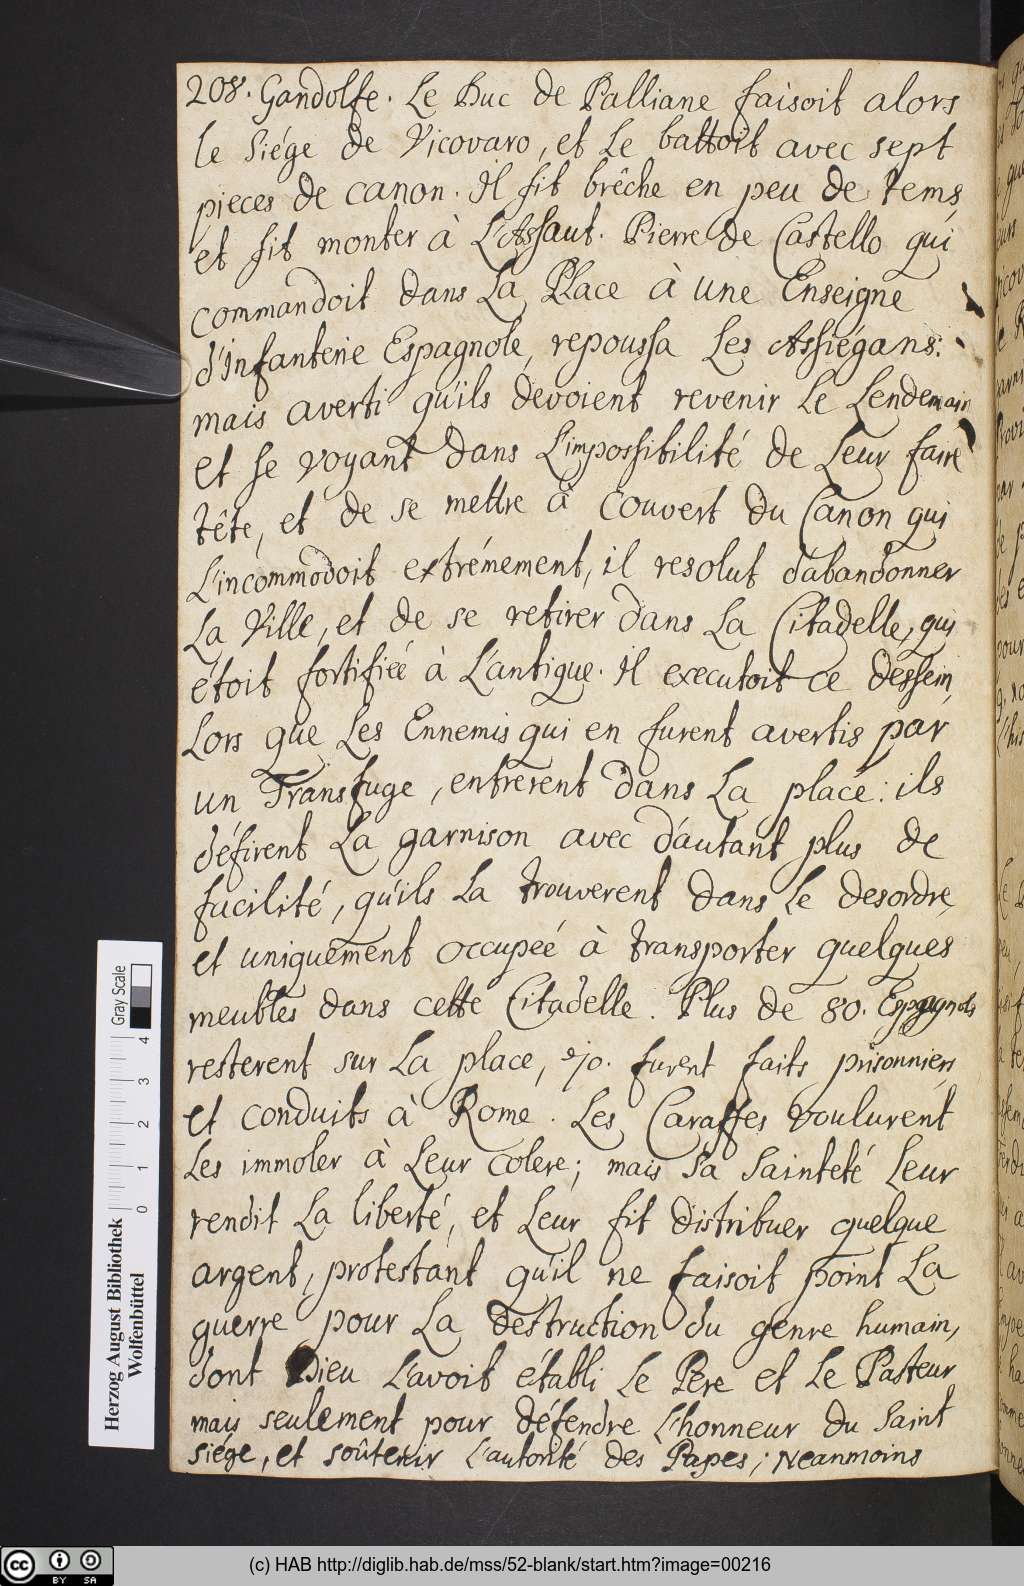 208. Gandolfe. Le Duc de Palliane faisoit alors
le siége de Vicovaro, et le battoit avec sept
pieces de canon. Il fit brêche en peu de tems,
et fit monter à L'Assaut. Pierre de Castello qui
commandoit dans La Place à une Enseigne
d'infanterie Espagnole, repoussa Les Assiégans:
mais averti qu'ils devoient revenir Le Lendemain
et se voyant dans L'impossibilité de Leur faire
tête, et de se mettre à couvert du Canon qui
L'incommodoit extrémement, il resolut d'abandonner
La Ville, et de se retirer dans La Citadelle, qui
étoit fortifieé à L'antique. Il executoit ce dessein,
Lors que Les Ennemis qui en furent avertis par
un Transfuge, entrerent dans La place: ils
défirent La garnison avec d'autant plus de
facilité, qu'ils La trouverent dans Le desordre,
et uniquement occupeé à transporter quelques
meubles dans cette Citadelle. Plus de 80. Espagnols
resterent sur La place, 70. furent faits prisonniers
et conduits à Rome. Les Caraffes voulurent
Les immoler à Leur colere; mais Sa Sainteté Leur
rendit La liberté, et Leur fit distribuer quelque
argent, protestant qu'il ne faisoit point La
guerre pour La destruction du genre humain,
dont Dieu L'avoit établi Le Pere et Le Pasteur
mais seulement pour défendre L'honneur du Saint
siége, et soûtenir L'autorité des Papes; Neanmoins
Herzog August Bibliothek
Wolfenbüttel
0 1 2 3 4
Gray Scale
cc BY SA
(c) HAB http://diglib.hab.de/mss/52-blank/start.htm?image=00216